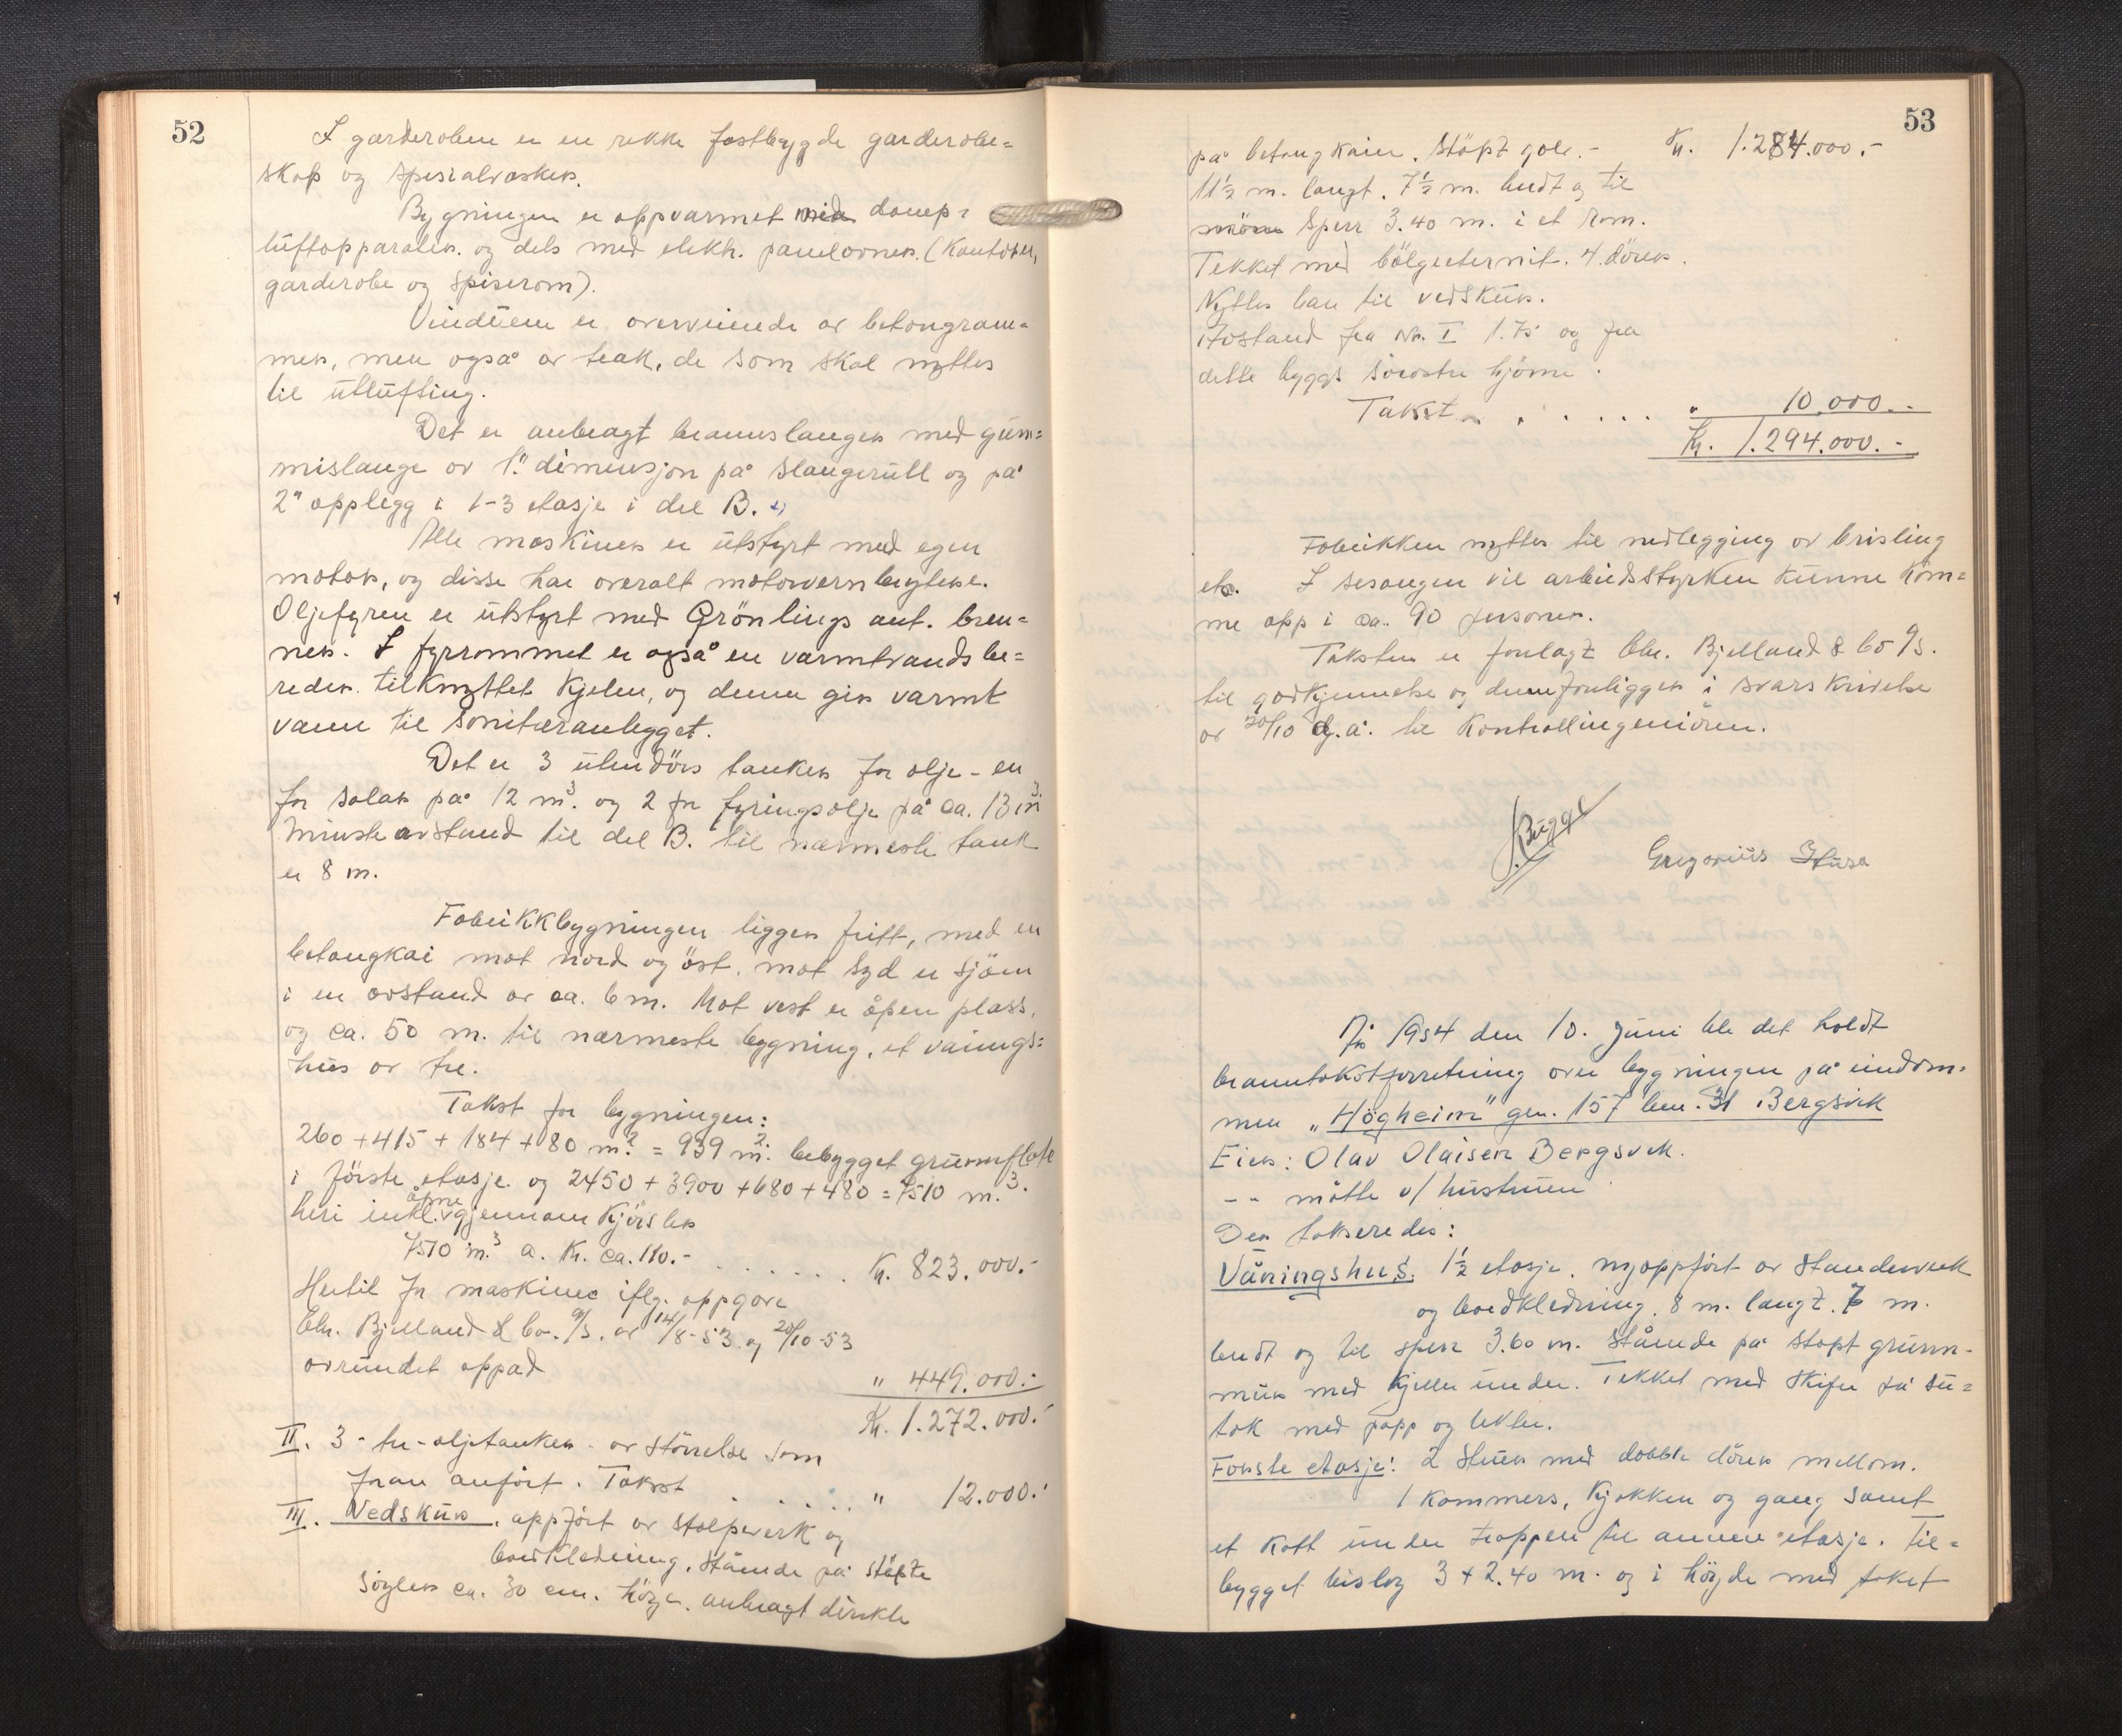 52
I garderoben er en rekke fastbygde garderobe=
skap og spesialvasker.
Bygningen er oppvarmet med damp=
luftapparater. og dels med elektr. panelovner. (Kontorer,
garderobe og spiserom).
Vinduene er overveiende av betongram=
mer, men også av teak, de som skal nyttes
til utlufting.
Det er anbragt brannslanger med gum=
mislange av 1." dimensjon på slangerull og på
2" opplegg i 1-3 etasje i del B.
Alle maskiner er utstyrt med egen
motor, og disse har overalt motorvernbrytere.
Oljefyren er utstyrt med Grönlings aut. bren=
ner. I fyrrommet er også en varmtvandsbe=
reder tilknyttet kjelen, og denne gir varmt
vann til sanitæranlegget.
Det er 3 utendörs tanker for olje - en
for solar på 12 m³. og 2 for fyringsolje på ca. 13 m³.
Minste avstand til del B. til nærmeste tank
er 8 m.
Fabrikkbygningen ligger fritt, med en
betongkai mot nord og öst, mot syd er sjöen
i en avstand av ca. 6 m. Mot vest er åpen plass,
og ca. 50 m. til nærmeste bygning, et vånings=
hus av tre.
Takst for bygningen:
260 + 415 + 184 + 80 m.² = 939 m². bebygget grunnflate
i förste etasje og 2450 + 3900 + 680 + 480 = 7510 m.³.
heri inkl. åpne gjennomkjörsler
7510 m.³ a. Kr. ca. 110.- . . . . . . Kr. 823.000.-
Hertil for maskiner iflg. oppgave
Chr. Bjelland & Co. A/S. av 14/8-53 og 20/10-53
avrundet oppad
" 449.000.-
Kr. 1.272.000.-
II. 3 - tre - oljetanker - av störrelse som
foran anfört. Takst . . . . . " 12.000.-
III. Vedskur, oppfört av stolpeverk og
bordkledning, stående på stöpte
söyler ca. 30 cm. höye, anbragt direkte
53
på betongkaien. Stöpt golv. - Kr. 1.284.000.-
11½ m. langt. 7½ m. bredt og til
möne sperr 3.40 m. i et rom.
Tekket med bölgeeternit. 4 dörer.
Nyttes kan til vedskur.
Avstand fra Nr. I 1.75 og fra
dette byggs sörostre hjörne.
Takst . . . . . . " 10.000.-
Kr. 1.294.000.-
Fabrikken nyttes til nedlegging av brisling
etc. I sesongen vil arbeidsstyrken kunne kom=
me opp i ca. 90 personer.
Taksten er forelagt Chr. Bjelland & Co A/S.
til godkjennelse og denne foreligger i svarskrivelse
av 20/10 d.å. til Kontrollingeniören.
Bugge
Gregorius Husa
År 1954 den 10. juni ble det holdt
branntakstforretning over bygningen på eiendom=
men "Högheim" gnr. 157 bnr. 31 Bergsvik
Eier: Olav Olaisen Bergsvik.
-"- mötte v/ hustruen
Der takseredes:
Våningshus. 1½ etasje. nyoppfört av standerverk
og bordkledning. 8 m. langt. 7 m.
bredt og til sperr 3.60 m. Stående på stöpt grunn-
mur med kjeller under. Tekket med skifer på su=
tak med papp og lekter.
Förste etasje: 2 stuer med doble dörer mellom.
1 kammers, kjökken og gang samt
et kott under trappen til annen etasje. Til=
bygget bislag 3 + 2.40 m. og i höyde med taket